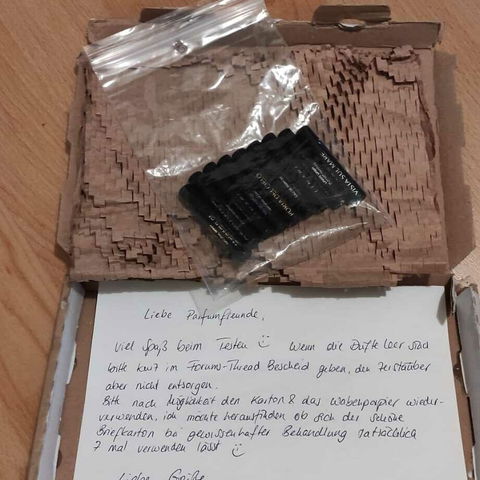 VISTA SUL MARE
PORTA DEL CIELO
Liebe Parfumfreunde,
Viel Spaß beim Testen ☺ Wenn die Düfte leer sind
bitte kurz im Forums-Thread Bescheid geben, den Zerstäuber
aber nicht entsorgen.
Bitte nach Möglichkeit den Karton & das Wabenpapier wieder-
verwenden, ich möchte herausfinden ob sich der schöne
Briefkarton bei gewissenhafter Behandlung tatsächlich
7 mal verwenden lässt ☺
Liebe Grüße